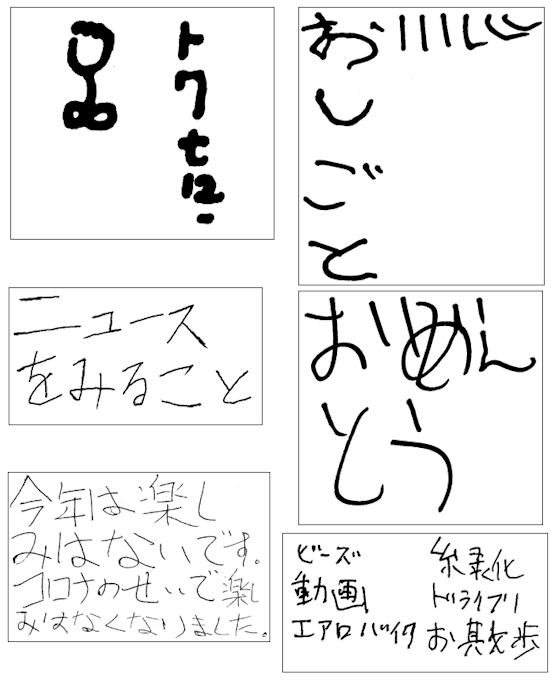 トクセ12ー
おしごと
ニュース
をみること
おめん
とう
今年は楽し
みはないです。
コロナのせいで楽し
みはなくなりました。
ビーズ
動画
エアロバイク
ドライブ
お散歩